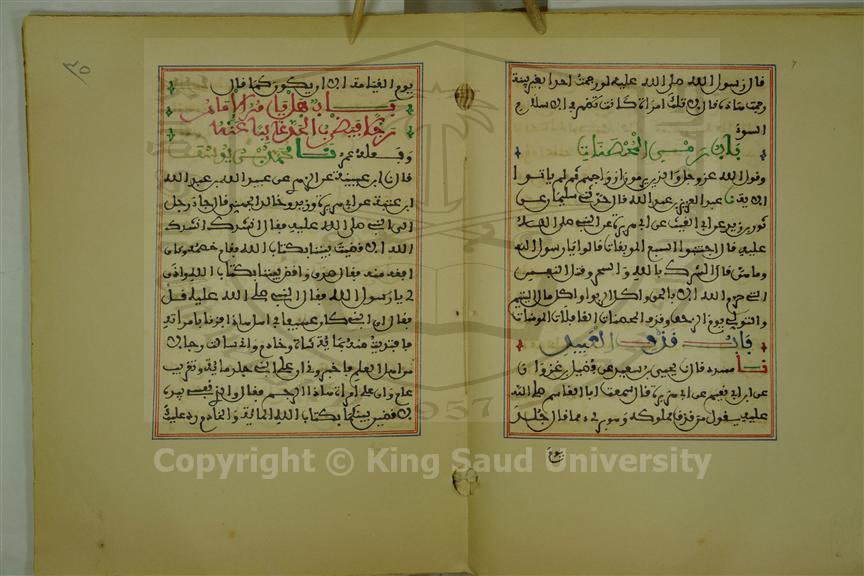 قال رسول الله صلى الله عليه لو رجمت احدا بغير بينة
رجمت هذه فقال لا تلك امراة كانت تظهر في الاسلام
السوء
باب رمي المحصنات
وقول الله عز وجل والذين يرمون ازواجهم ثم لم ياتوا
الاية نا عبد العزيز بن عبد الله قال حدثني سليمان عن
ثور بن زيد عن ابي الغيث عن ابي هريرة عن النبي صلى الله
عليه قال اجتنبوا السبع الموبقات قالوا يا رسول الله
وما هن قال الشرك بالله والسحر وقتل النفس
التي حرم الله الا بالحق واكل الربوا واكل مال اليتيم
والتولي يوم الزحف وقذف المحصنات الغافلات المومنات
باب قذف العبيد
نا مسدد قال نا يحيى بن سعيد عن فضيل بن غزوان
عن ابن ابي نعم عن ابي هريرة قال سمعت ابا القاسم صلى الله
عليه يقول من قذف مملوكه وهو بريء مما قال جلد
يوم
٣٥
يوم القيامة الا ان يكون كما قال
باب هل يامر الامام
رجلا فيضرب الحد غائبا عنه
وفعله عمر نا محمد بن يوسف
قال نا ابن عيينة عن الزهري عن عبيد الله بن عبد الله
ابن عتبة عن ابي هريرة وزيد بن خالد الجهني قال جاء رجل
الى النبي صلى الله عليه فقال انشدك
الله الا قضيت بيننا بكتاب الله فقام خصمه وكان
افقه منه فقال صدق اقض بيننا بكتاب الله واذن
لي يا رسول الله فقال النبي صلى الله عليه قل
فقال ان ابني كان عسيفا في اهل هذا فزنا بامراته
فافتديت منه بمائة شاة وخادم واني سالت رجالا
من اهل العلم فاخبروني ان على ابني جلد مائة وتغريب
عام وان على امراة هذا الرجم فقال والذي نفسي بيده
لاقضين بينكما بكتاب الله المائة والخادم رد عليك
Copyright © King Saud University
1957